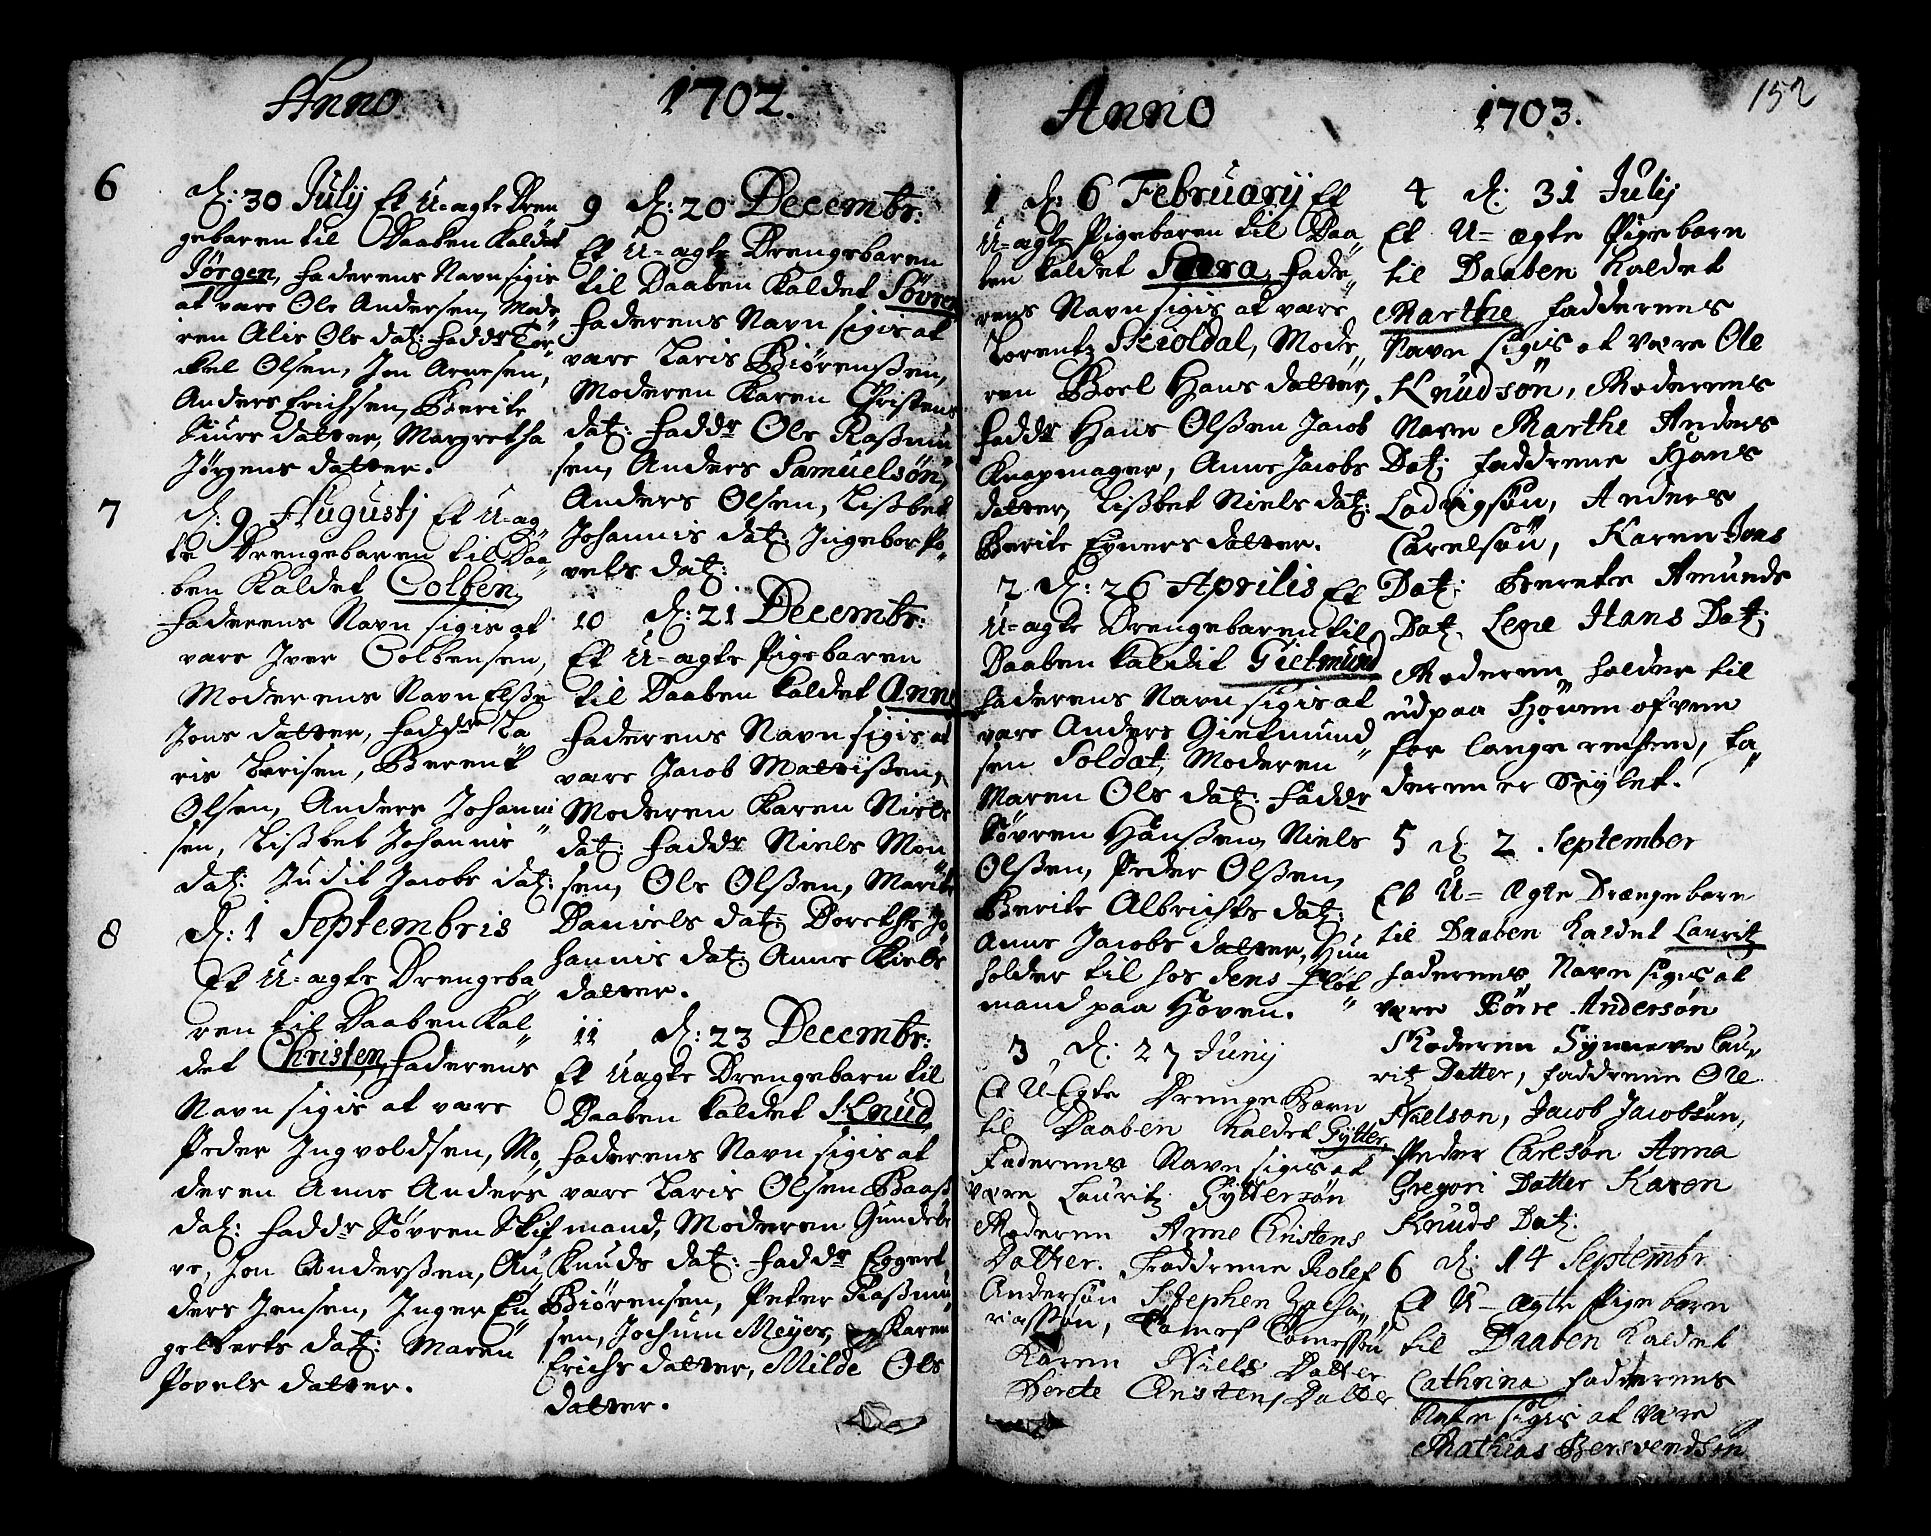 Anno 1702.
6 d: 30 Julij Et U-agte Dren
gebaren til Daaben Kaldet
Jørgen, faderens Navn sigis
at vare Ole Andersen, Mode„
ren Alis Ols dat: faddr Tor„
ckel Olsen, Jon Arnesen,
Anders Erichsen, Berite
Siurs datter, Margretha
Jørgens datter.
7 d: 9 Augustj Et U-ag„
te Drengebaren til Daa„
ben Kaldet Colben,
faderens Navn sigis at
vare Iver Colbensen,
Moderens Navn Elsße
Jons datter, faddr La
ris Larisen, Berent
Olsen, Anders Johanni„
sen, Lißbet Johannis
dat: Judit Jacobs dat:
8 d: 1 Septembris
Et U-agte Drengeba„
ren til Daaben Kal„
det Christen, faderens
Navn sigis at vare
Peder Ingvoldsen, Mo„
deren Anne Anders
dat: faddr Søvren Skif
ve, Jon Anderßen, An„
ders Jensen, Inger En„
gelberts dat: Maren
Povels datter.
9 d: 20 Decembr:
Et U-agte Drengebaren
til Daaben Kaldet Søvren
faderens Navn sigis at
vare Laris Biørenßen,
Moderen Karen Christens
dat: faddr Ole Raßmu„
sen, Anders Samuelsøn,
Anders Olsen, Lißbet
Johannis dat: Ingebor Po„
vels dat:
10 d: 21 Decembr:
Et U-agte Pigebaren
til Daaben kaldet Anne
faderens Navn sigis at
vare Jacob Mattißen,
Moderen Karen Niels
dat: faddr Niels Mon„
sen, Ole Olßen, Marite
Daniels dat: Dorethe Jo„
hannis dat: Anne Niels
datter.
11 d: 23 Decembr:
Et Uagte Drengebarn til
Daaben kaldet Knud,
faderens Navn sigis at
vare Laris Olsen Baaß
mand, Moderen Gundele
Knuds dat: faddr Eggert
Biørensen, Peter Raßmu„
sen, Jochum Meyer, Karen
Erichs datter, Milde Ols
datter.
Anno 1703. 152
1 d: 6 Februarij Et
U-agte Pigebaren til Daa„
ben kaldet Sara, fade„
rens Navn sigis at vare
Lorentz Skioldal, Mode„
ren Boel Hans datter,
faddr Hans Olßen Jacob
Knapmager, Anne Jacobs
datter, Lißbet Niels dat:
Berite Eyners datter.
2 d: 26 Aprilis Et
U-agte Drengebaren til
Daaben kaldit Gietmund
faderens Navn sigis at
vare Anders Gietmund„
sen Soldat, Moderen
Maren Ols dat: faddr
Søvren Hanßen, Niels
Olßen, Peder Olßen,
Berite Albrichts dat:
Anne Jacobs datter, Hun
holder til hos Jens Fløt„
mand paa Høven.
3 d: 27 Junij
Et U-Egte Drenge Barn
til Daaben kaldet Gytter,
Faderens Navn sigis at
være Lauritz Gyttersøn
Moderen Anne Christens
Datter. Faddrene Rolef
Andersøn Stephen Zacha„
riassøn, Tomes Tomessøn
Karen Niels Datter
Berete Christens Datter
4 d: 31 Julij
Et U- ægte Pige barn
til Daaben kaldet
Marthe fadderens
Navn sigis at være Ole
Knudsøn, Moderens
Navn Marthe Anders
Dat; faddrene Hans
Ladvigsøn, Anders
Carelsøn, Karen Jons
Dat: Berete Amunds
Dat. Lene Hans Dat;
Moderen holder til
udpaa Høuen ofven
for lange rensem, fa„
deren er Seylet.
5 d: 2 September
Et U- Ægte Drænge barn
til Daaben kaldet Lauritz
faderens Navn sigis at
være Børre Andersøn
Moderen Synneve Lau„
ritz Datter, faddrene Ole
Nielson, Jacob Jacobsøn,
Peder Carlsøn Anna
Gregori Datter Karen
Knuds Dat;
6 d: 14 Septembr
Et U- ægte Pige barn
til Daaben kaldet
Cathrina fadderens
Nafn sigis at være
Mathias Bersvendsøn